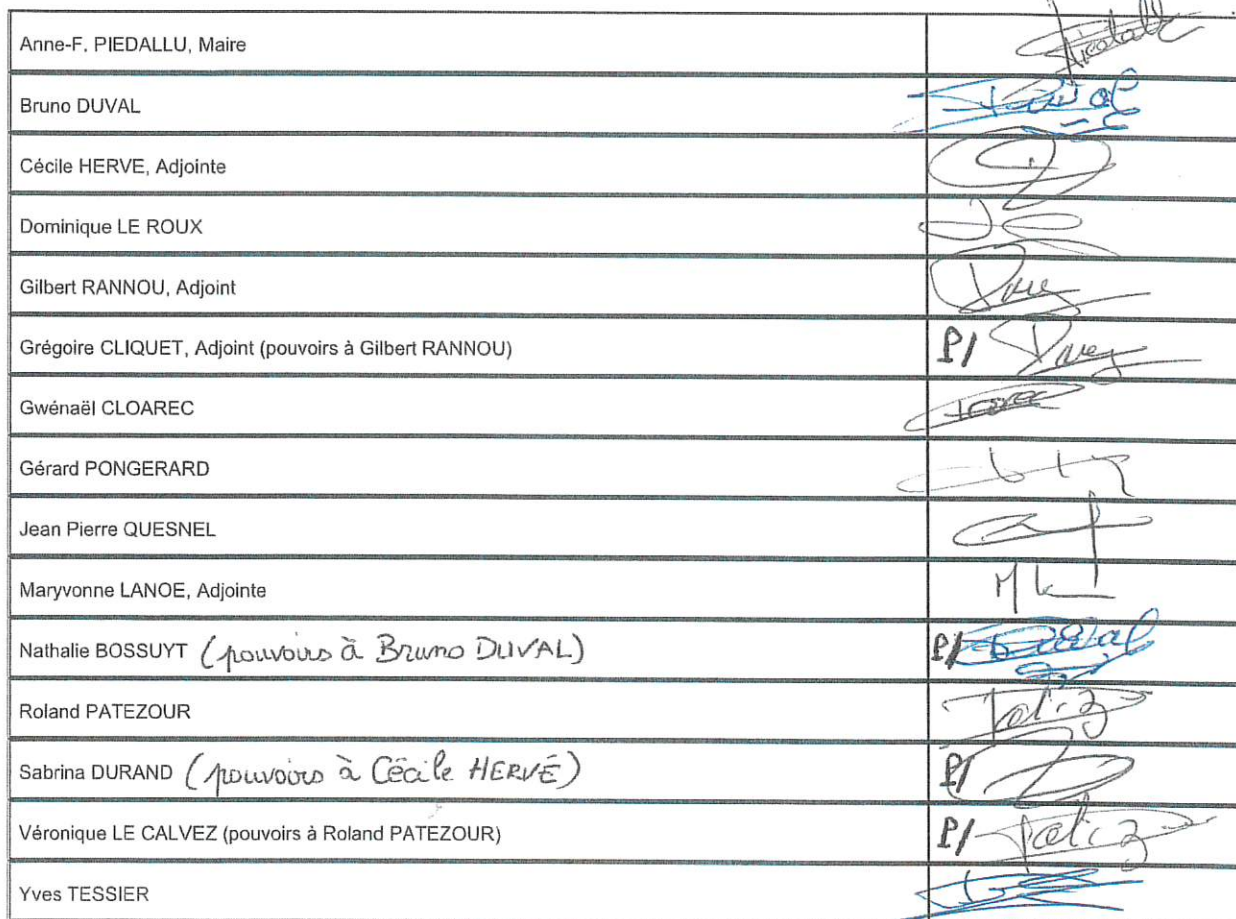 Anne-F. PIEDALLU, Maire
Bruno DUVAL
Duval
Cécile HERVE, Adjointe
Dominique LE ROUX
Gilbert RANNOU, Adjoint
Grégoire CLIQUET, Adjoint (pouvoirs à Gilbert RANNOU) P/
Gwénaël CLOAREC
Gérard PONGERARD
Jean Pierre QUESNEL
Maryvonne LANOE, Adjointe
Nathalie BOSSUYT (pouvoirs à Bruno DUVAL) P/ Duval
Roland PATEZOUR
Sabrina DURAND (pouvoirs à Cécile HERVÉ) P/
Véronique LE CALVEZ (pouvoirs à Roland PATEZOUR) P/
Yves TESSIER